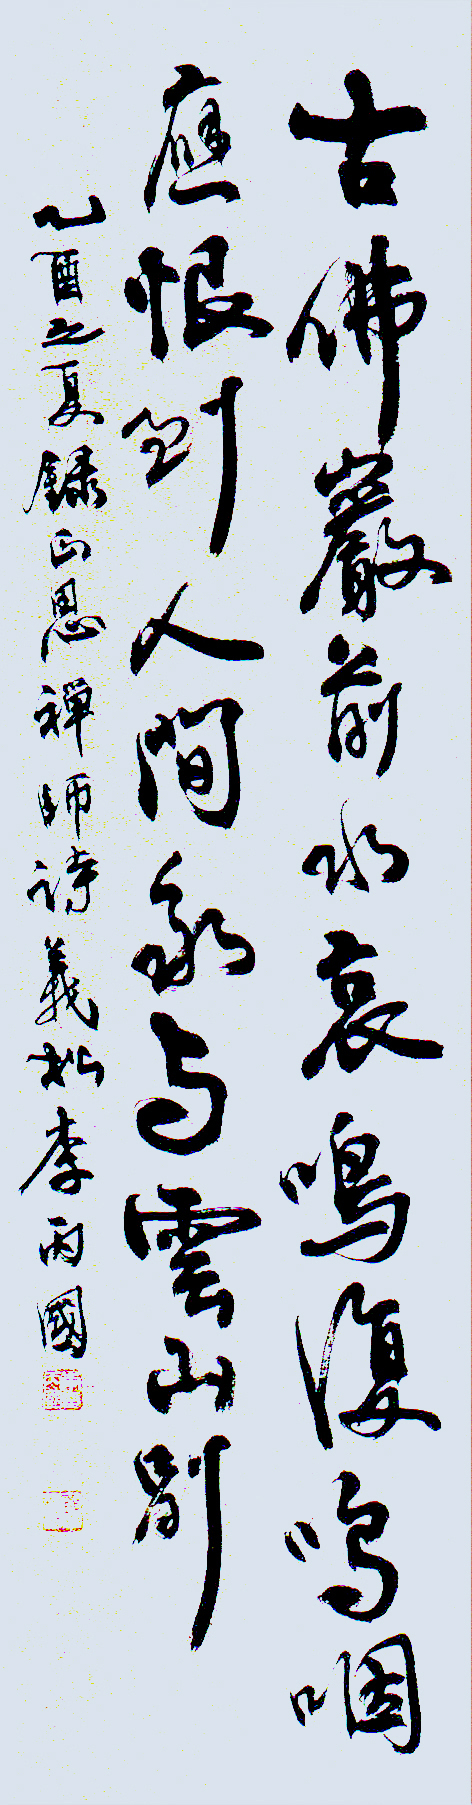 古佛巖前水哀鳴復嗚咽
應恨到人間永與雲山別
乙酉之夏錄正思禪師詩義松李丙國